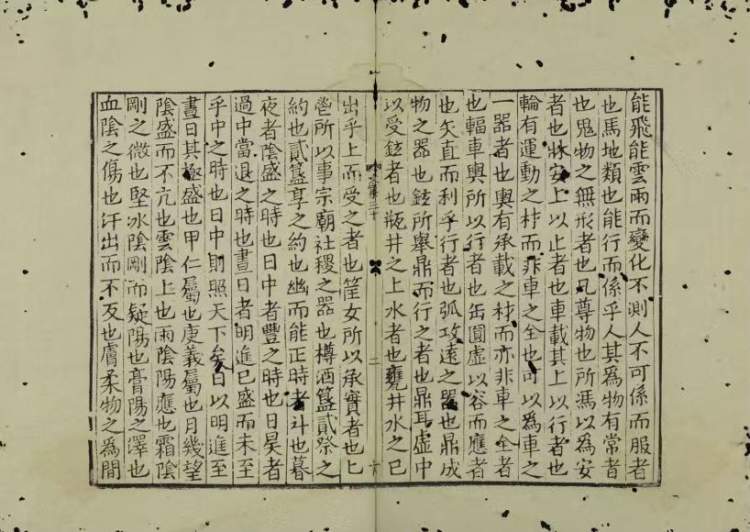 能飛能雲雨而變化不測人不可係而服者
也馬地類也能行而係乎人其為物有常者
也鬼物之無形者也凡尊物也所馮以為安
者也牀安上以止者也車載其上以行者也
輪有運動之材而非車之全也可以為車之
一器者也輿有承載之材而亦非車之全者
也輻車輿所以行者也缶圓虛以容而應者
也矢直而利乎行者也弧攻遠之器也鼎成
物之器也鉉所舉鼎而行之者也鼎耳虛中
以受鉉者也瓶井之上水者也甕井水之已
出乎上而受之者也筐女所以承實者也匕
鬯所以事宗廟社稷之器也樽酒簋貳祭之
約也貳簋享之約也幽而能正時者斗也暮
夜者陰盛之時也日中者豐之時也日昃者
過中當退之時也晝日者明進已盛而未至
乎中之時也日中則照天下矣日以明進至
晝日其極盛也甲仁屬也庚義屬也月幾望
陰盛而不亢也雲陰上也雨陰陽應也霜陰
剛之微也堅冰陰剛而疑陽也膏陽之澤也
血陰之傷也汗出而不反也膚柔物之為間